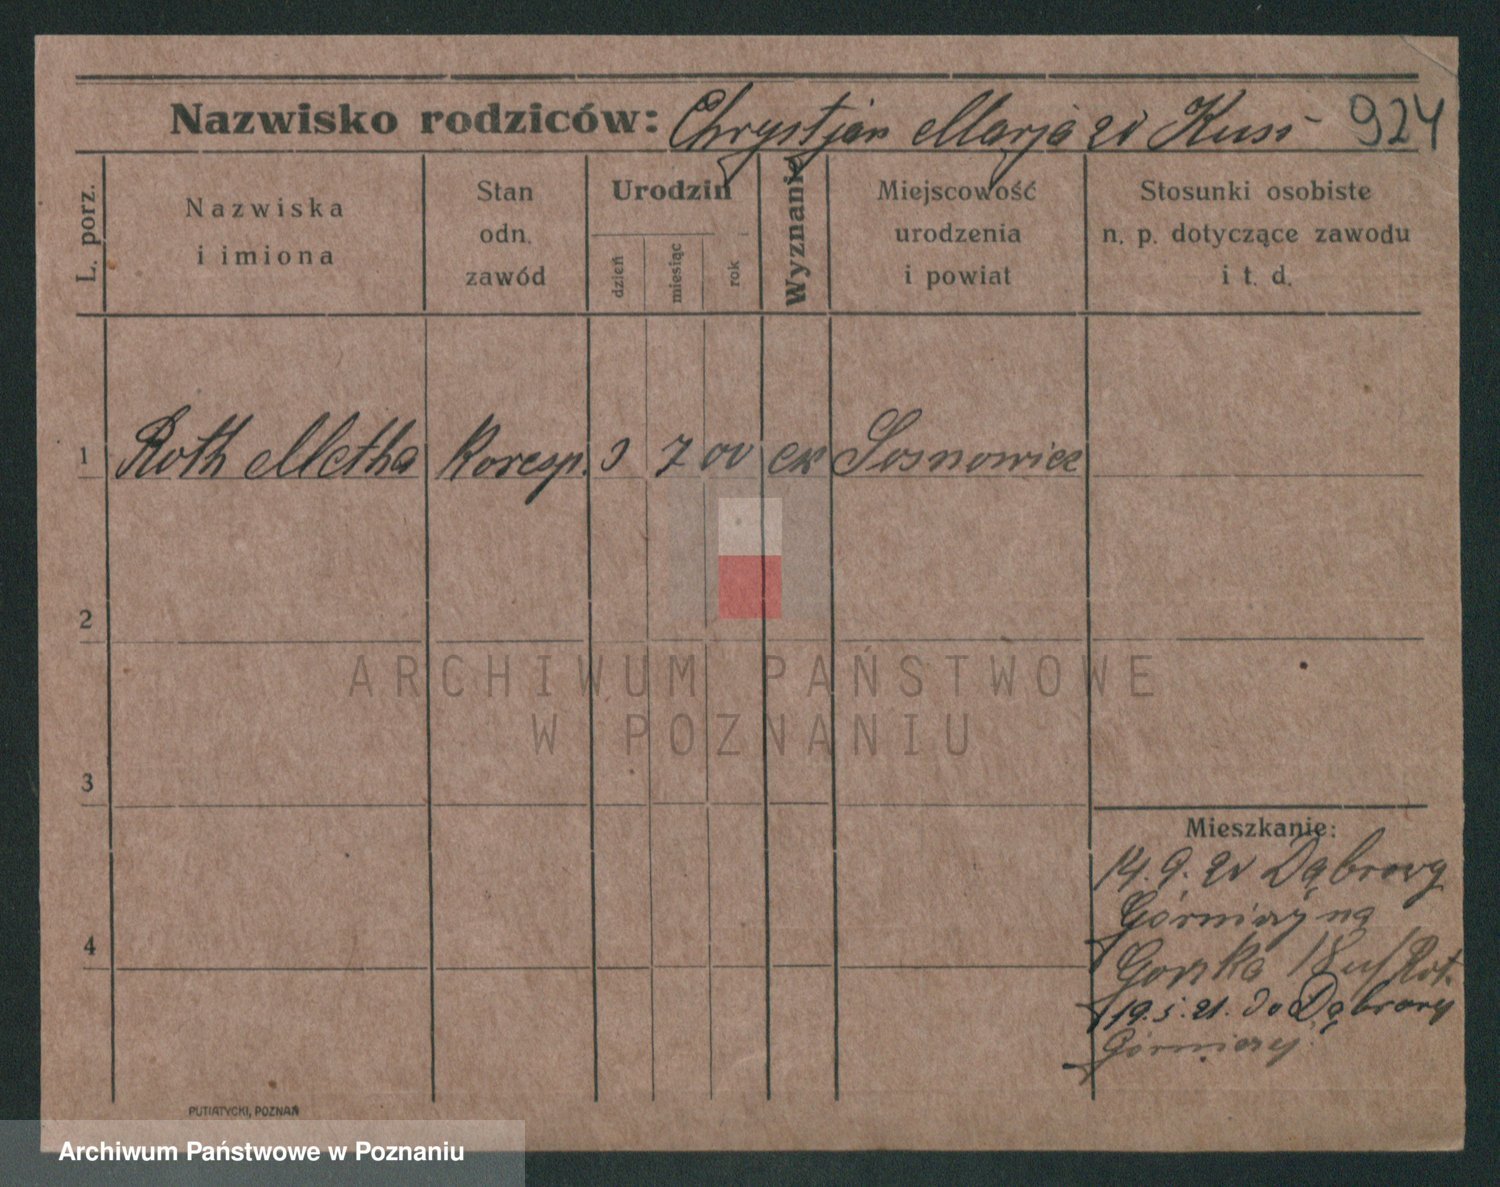 Nazwisko rodziców: Chrystjan Marja zd Kuss - 924
L. porz.
Nazwiska
i imiona
Stan
odn.
zawód
Urodzin
dzień
miesiąc
rok
Wyznanie
Miejscowość
urodzenia
i powiat
Stosunki osobiste
n. p. dotyczące zawodu
i t. d.
1 Roth Metha Koresp. 3 7 00 ew Sosnowiec
2
3
4
Mieszkanie:
14. 9. 20 Dąbrowy
Górniczej na
Gorska 18 u/Rot.
19. 5. 21. do Dąbrowy
Górniczej
PUTIATYCKI, POZNAŃ
ARCHIWUM PAŃSTWOWE
W POZNANIU
Archiwum Państwowe w Poznaniu